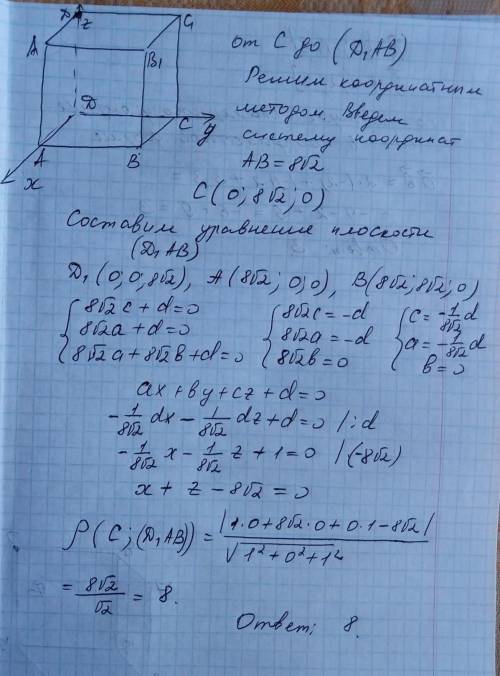 D₁ z C₁
A B₁
D C y
A B
x
от C до (D₁AB)
Решим координатным
методом. Введем
систему координат
AB = 8√2
C (0; 8√2; 0)
Составим уравнение плоскости
(D₁AB)
D₁ (0; 0; 8√2), A (8√2; 0; 0), B (8√2; 8√2; 0)
{ 8√2c + d = 0 { 8√2c = -d { c = -1/8√2 d
{ 8√2a + d = 0 { 8√2a = -d { a = -1/8√2 d
{ 8√2a + 8√2b + d = 0 { 8√2b = 0 { b = 0
ax + by + cz + d = 0
-1/8√2 dx - 1/8√2 dz + d = 0 | : d
-1/8√2 x - 1/8√2 z + 1 = 0 | (-8√2)
x + z - 8√2 = 0
ρ (C; (D₁AB)) = |1·0 + 8√2·0 + 0·1 - 8√2| / √(1² + 0² + 1²)
= 8√2/√2 = 8.
Ответ: 8.